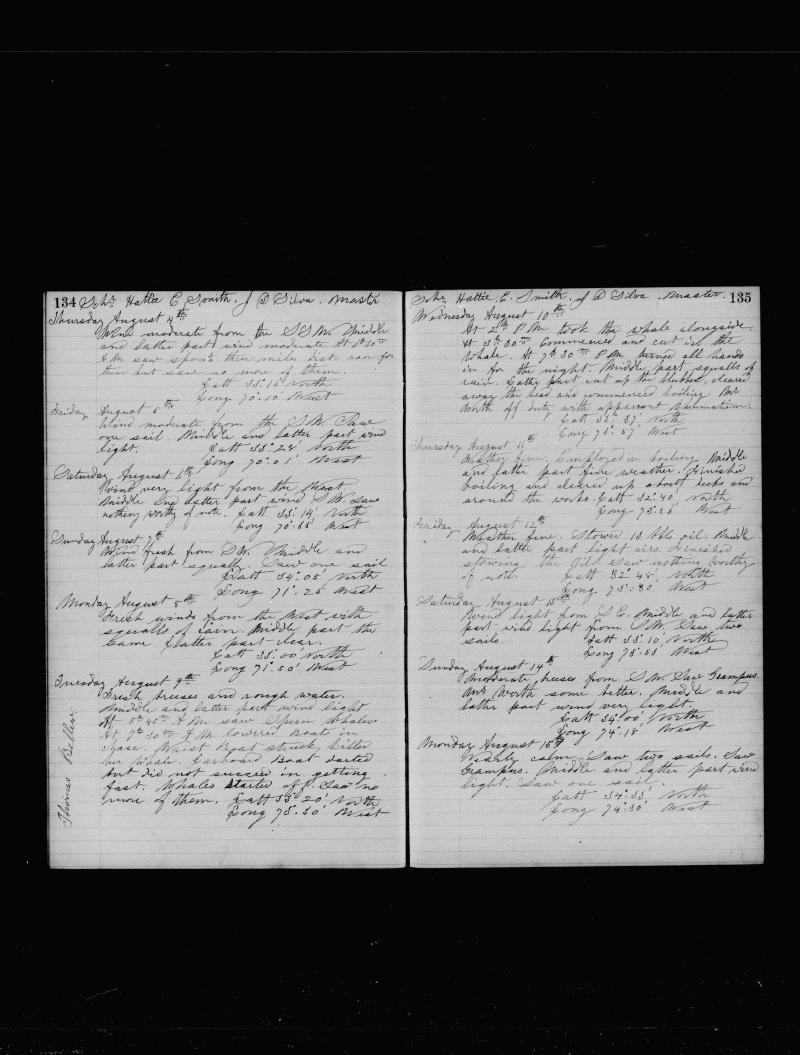 134 Schr Hattie E Smith. J D Silva. Master
Thursday August 4th
Wind moderate from the SSW. Middle
and latter part wind moderate. At
A M saw spouts three miles dist ran for
them but saw no more of them.
Latt 33.16 North
Long 70.00 West
Friday August 5th
Wind moderate from the SW. Saw
one sail. Middle and latter part wind
light. Latt 33.24 North
Long 70.01' West
Saturday August 6th
Wind very light from the West
Middle and latter part wind S W. Saw
nothing worthy of note. Latt 33.14' North
Long West
Sunday August 7th
Wind fresh from S W. Middle and
latter part squally. Saw one sail
Latt 34.05' North
Long 71.25 West
Monday August 8th
Fresh winds from the West with
squalls of rain. Middle part the
same. Latter part clear.
Latt 33.00' North
Long 71.50' West
Tuesday August 9th
Fresh breeses and rough water.
Middle and latter part wind light.
At 5h 45m A M saw Sperm Whales
At 7h 30m A M lowered boats in
chase. Waist Boat struck, killed
her whale. Larboard Boat darted
but did not succeed in getting
fast. Whales started off. Saw no
more of them. Latt 33.20' North
Long 73.30' West
Thomas
Schr Hattie E. Smith. J D Silva. Master. 135
Wednesday August 10th
At 2h P M took the whale alongside.
At 3h 30m Commenced and cut in the
Whale. At 7h 30m P M turned all hands
in for the night. Middle part squalls of
rain. Latter part cut up the blubber, cleared
away the head and commenced boiling. Mr
Worth off duty with apparent Rhumatism.
Latt North
Long West
Thursday August 11th
Weather fine. Employed in boiling. Middle
and latter part fine weather. Finished
boiling and cleared up about decks and
around the works. Latt 32.40' North
Long West
Friday August 12th
Weather fine. Stowed 13 bbls oil. Middle
and latter part light airs. Finished
stowing the Oil. Saw nothing worthy
of note. Latt 32.48, North
Long West
Saturday August 13th
Wind light from S E. Middle and latter
part wind light from S W. Saw two
sails. Latt 33.10' North
Long West
Sunday August 14th
Moderate breeses from S W. Saw Grampus.
Mr Worth some better. Middle and
latter part wind very light.
Latt 34.00', North
Long 74.18' West
Monday August 15th
Nearly calm. Saw two sails. Saw
Grampus. Middle and latter part wind
light. Saw one sail.
Latt 34.33' North
Long 74.30' West